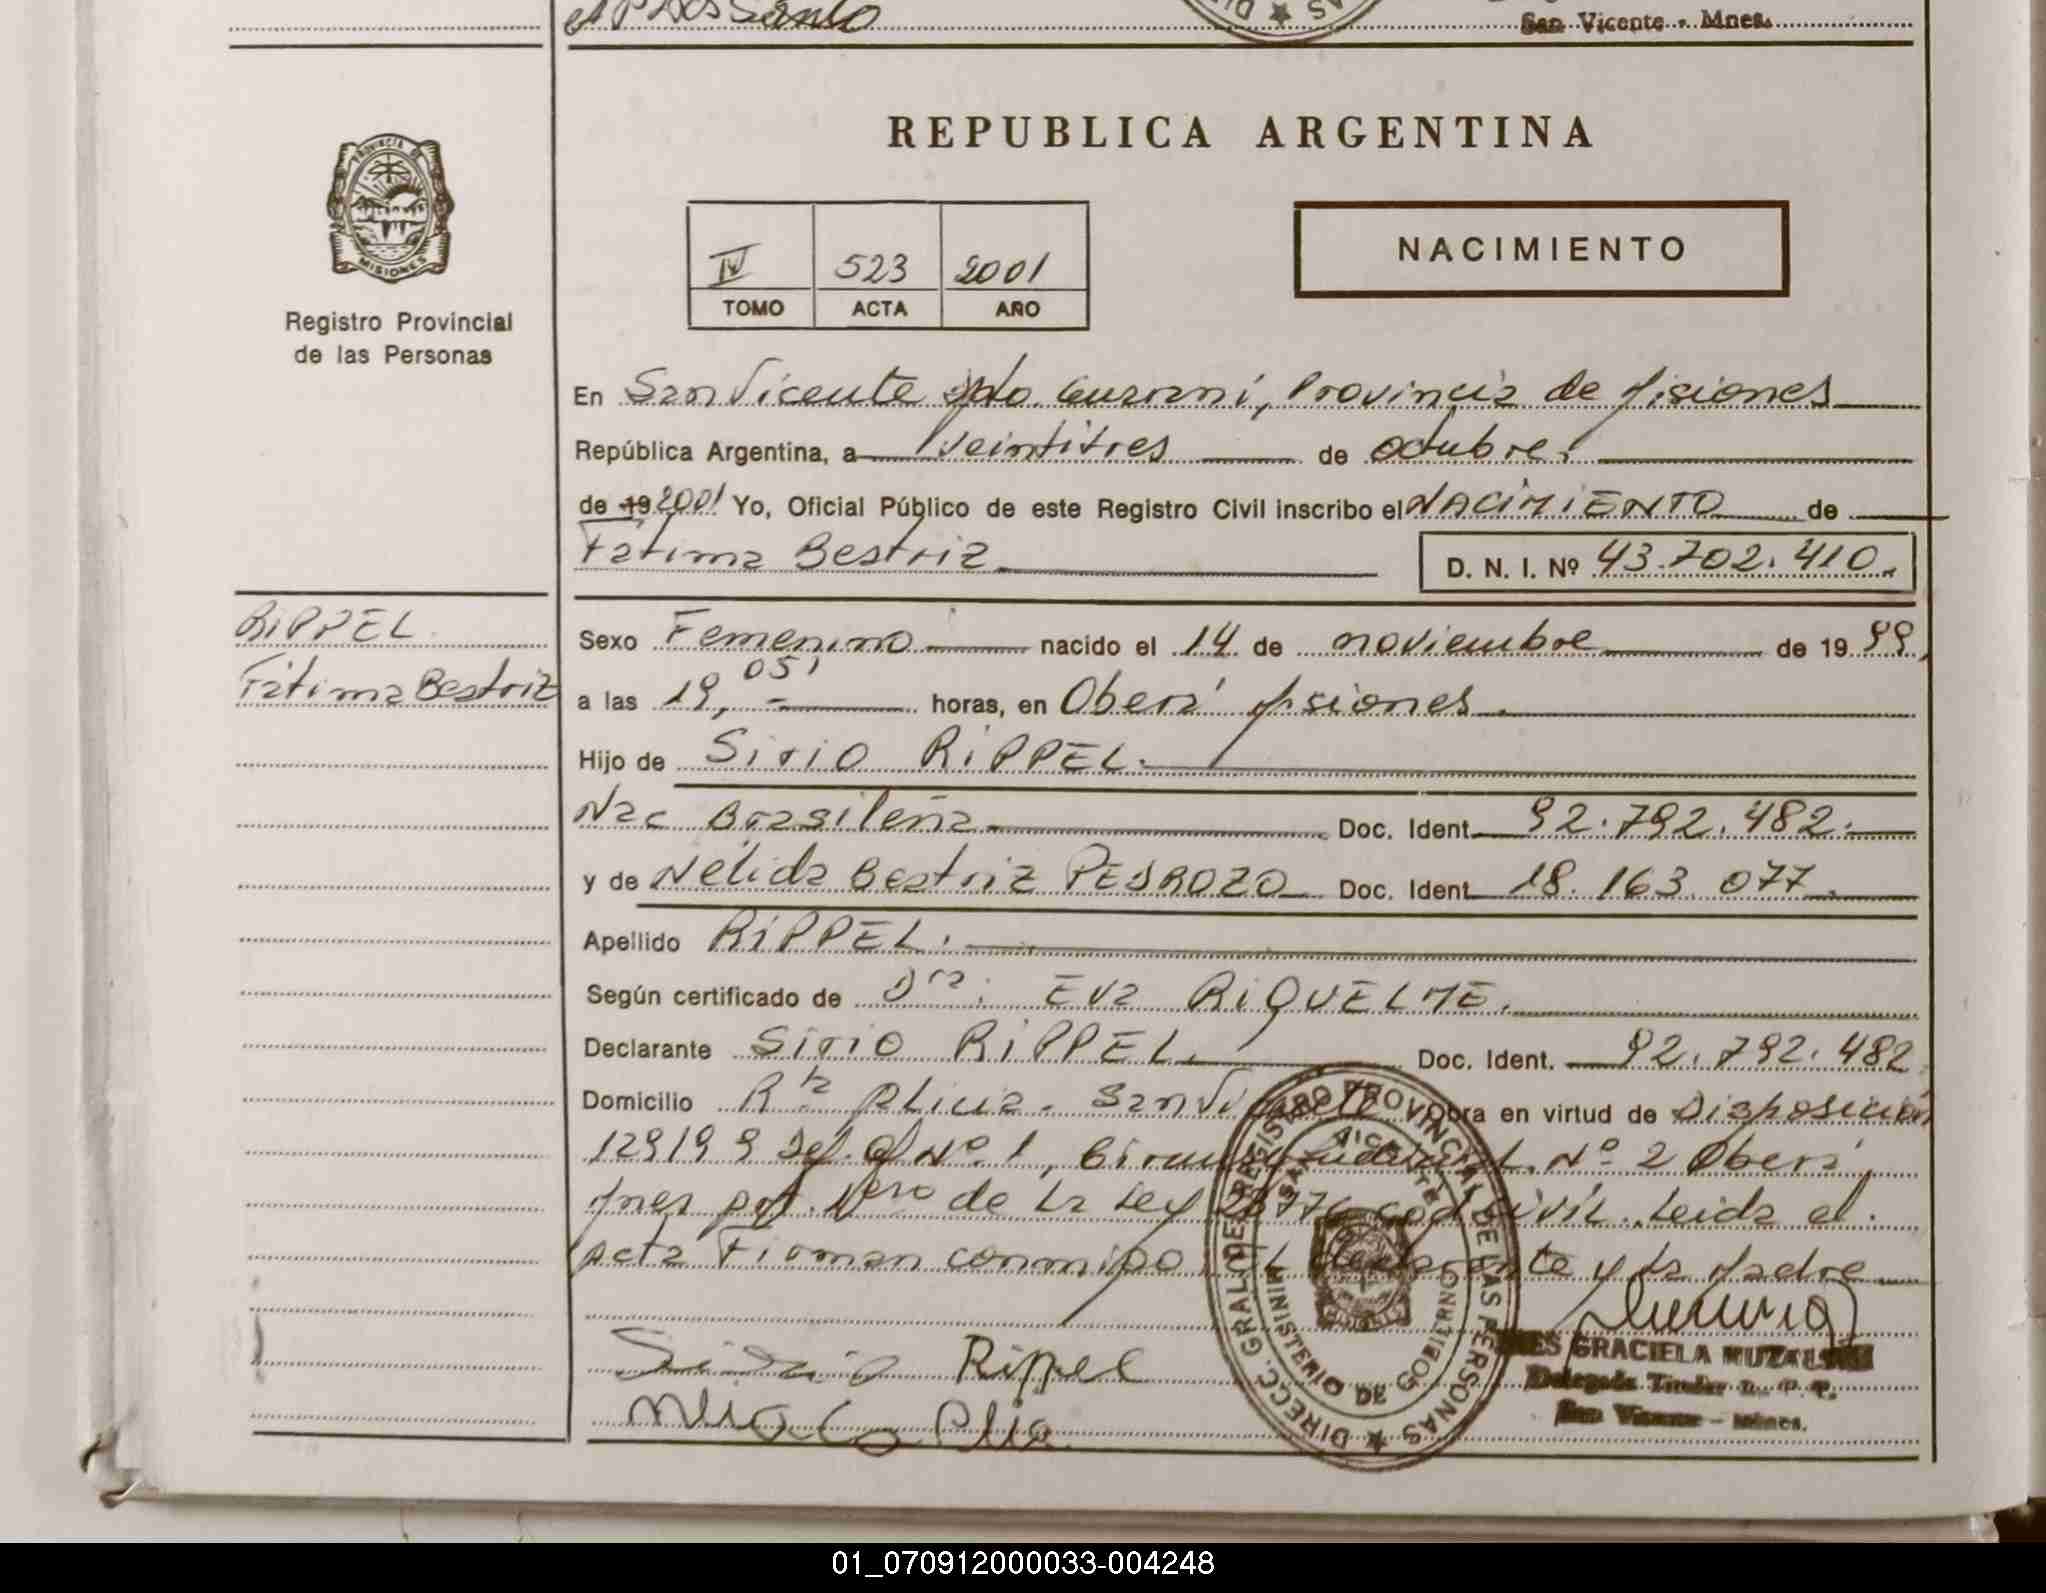 San Vicente - Mnes.
REPUBLICA ARGENTINA
PROVINCIA DE
MISIONES
Registro Provincial
de las Personas
IV 523 2001
TOMO ACTA AÑO
NACIMIENTO
En San Vicente Dpto Guaraní, Provincia de Misiones
República Argentina, a veintitres de octubre
de 19 2001 Yo, Oficial Público de este Registro Civil inscribo el NACIMIENTO de
Fátima Beatriz
D. N. I. Nº 43.702.410.
RIPPEL
Fátima Beatriz
Sexo Femenino nacido el 14 de noviembre de 19 99,
a las 19, 05' horas, en Oberá Misiones.
Hijo de Sirio RIPPEL.
Nac Brasileña Doc. Ident. 92.792.482.
y de Nélida Beatriz PEDROZO Doc. Ident. 18.163.077.
Apellido RIPPEL.
Según certificado de Dra: Eva RIQUELME.
Declarante Sirio RIPPEL. Doc. Ident. 92.792.482
Domicilio Rta Alicia. San Obra en virtud de Disposición
129199 Def. Of Nº 1, Nº 2 Oberá,
Mnes de la Ley Civil. Leida el
acta Firman conmigo el declarante y la madre
Rippel
DIRECC. GRAL. DE REGISTRO PROVINCIAL DE LAS PERSONAS
MINISTERIO DE GOBIERNO
SAN VICENTE
GRACIELA
Delegada Titular R. P. P.
San Vicente - Mnes.
01_070912000033-004248